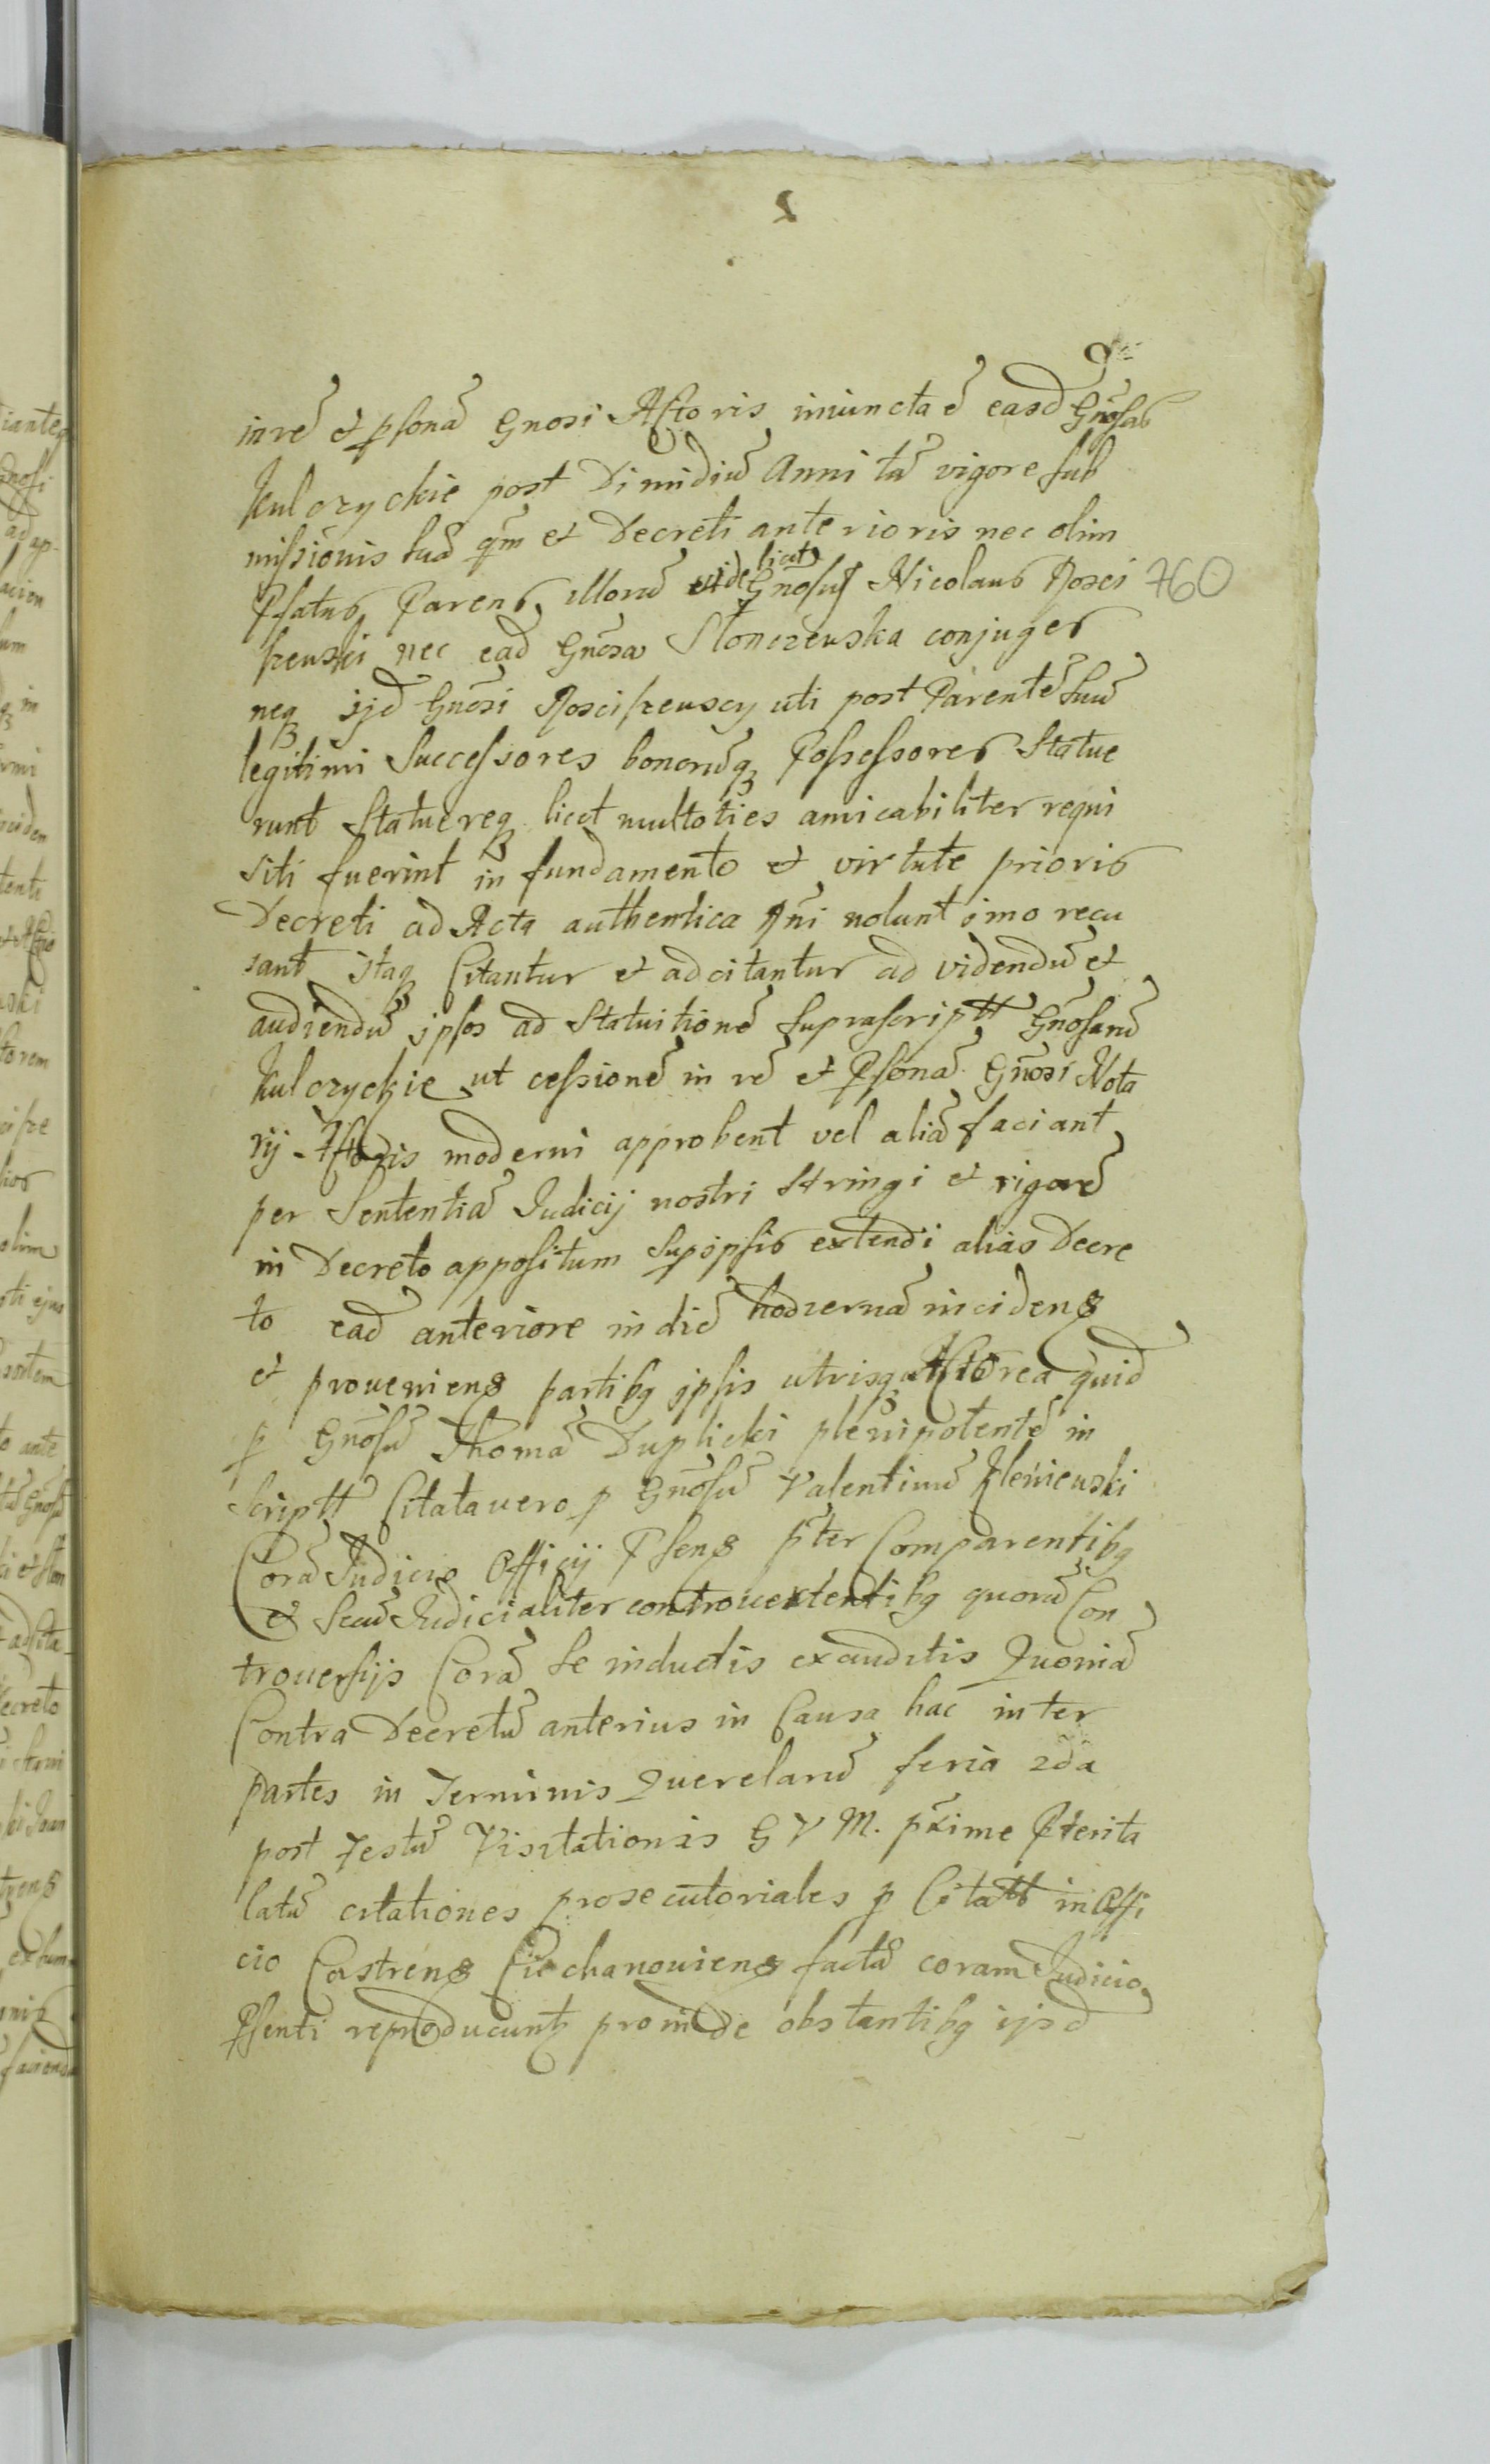 in re et psona Gnosi Actoris iniuncta e easd Gnosas
Kulczyckie post Dimidiu Anni ta vigore sub
missionis sua qm et Decreti anterioris nec olim
Psatus Parens illoru videlicet Gnosus Nicolaus Rosci
760
szewski nec ead Gnosa Slonczewska conjuges
neq ijd Gnosi Rosciszewscy uti post Parente suu
legitimi Successores bonoruq Possessores Statue
runt Statuereq licet multoties amicabiliter requi
siti fuerint in fundamento et virtute prioris
Decreti ad Acta authentica nolunt imo recu
sant itaq Citantur et adcitantur ad videndu et
audiendu ipsos ad Statuitione suprascriptt Gnosaru
Kulczyckie ut cessione in re et Psona Gnosi Nota
rij Actoris moderni approbent vel alia faciant
per Sententia Judicij nostri stringi et rigore
in Decreto appositum sup ipsis extendi alias Decre
to ead anteriore in die hodierna incidens
et proueniens partibq ipsis utrisq Actorea quid
p Gnosu Thoma Duplicki plenipotente in
scriptt Citata vero p Gnosu Valentinu Kleniewski
Cora Judicio Officij Psens pter Comparentibq
et Secu Judicialiter controvertentibq quoru Con
trouersijs Cora se inductis exauditis Quonia
Contra Decretu anterius in Causa hac inter
partes in Terminis Querelaru feria 2da
post Festu Visitationis G V M. pxime Pterita
latu citationes prosecutoriales p Citatt in Offi
cio Castrens Ciechanouiens facta coram Judicio
Psenti reproducunt proinde obstantibq ijsd